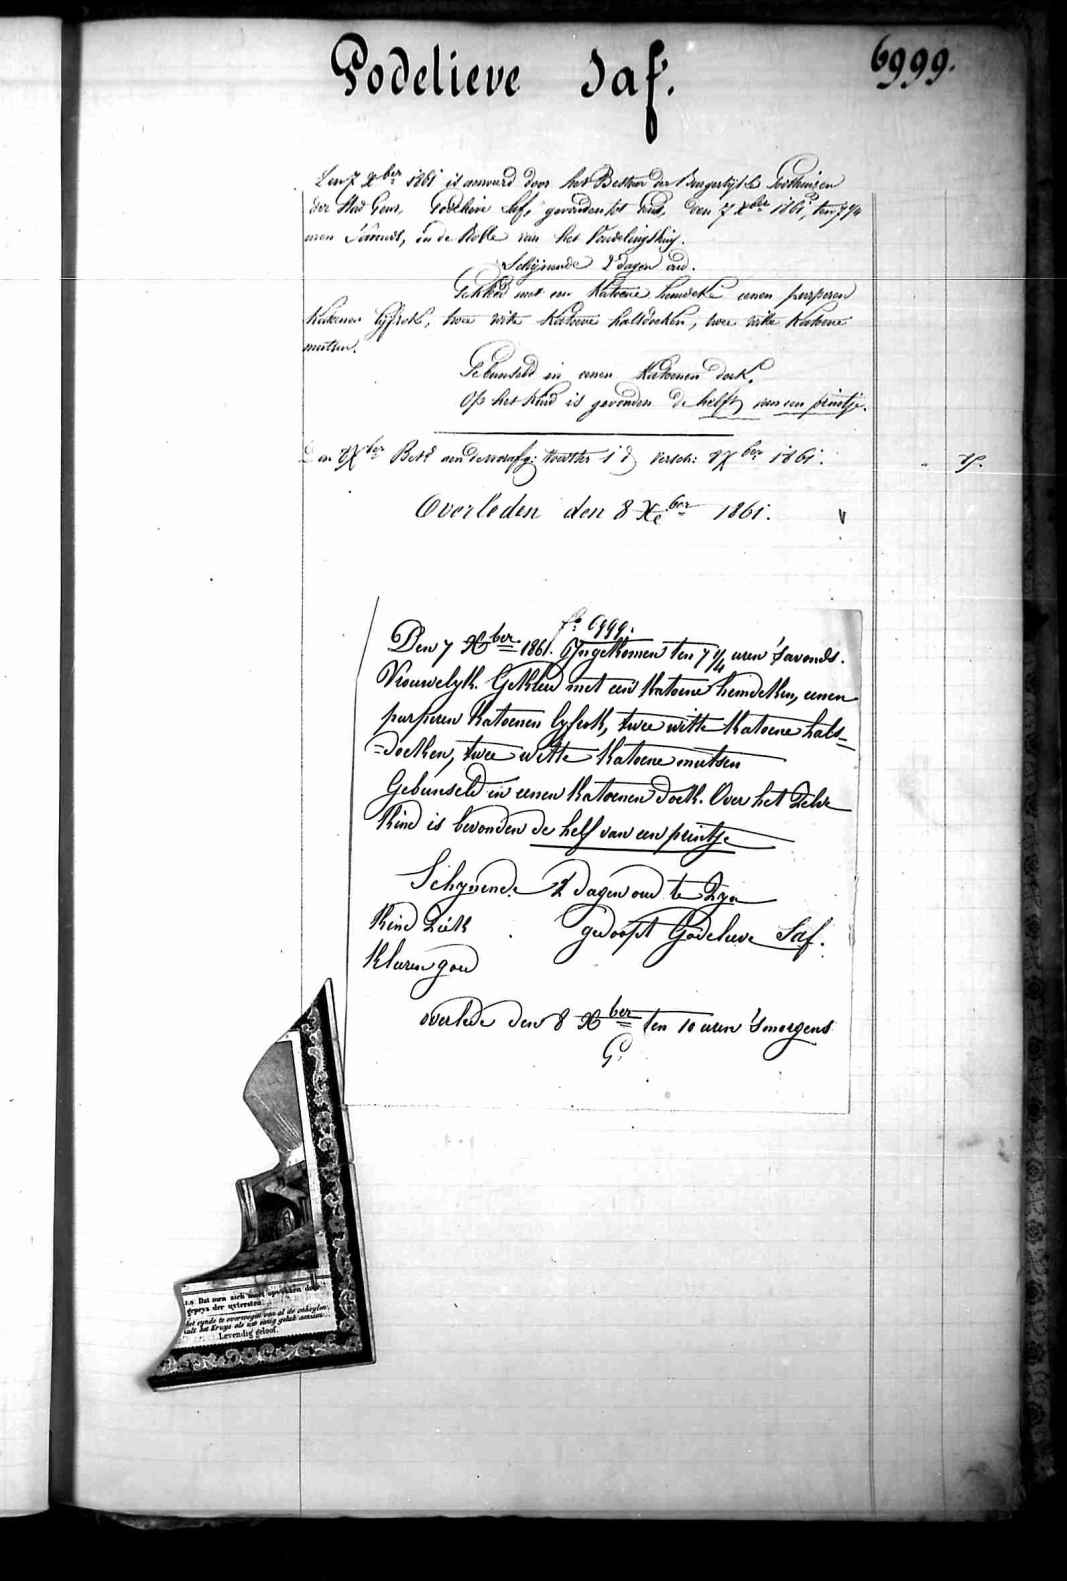 Godelieve Saf.
6999.
Den 7 Xber 1861 is aenveerd door het Bestier der Burgerlijke Godshuizen
der Stad Gent, Godelieve Saf, gevonden tot Gent, den 7 Xber 1861, ten 7 1/4
uren 's avonds, in de Rolle van het Vondelingshuis.
Schijnende 2 dagen oud.
Gekleed met een katoene hemdeke eenen purperen
katoenen lyfrok, twee witte katoene halsdoeken, twee witte katoene
mutsen.
Gebunseld in eenen katoenen doek.
Op het kind is gevonden de helft van een printje.
Den 8 Xber Bet. aen Versch: 8 Xber 1861.
Overleden den 8 Xber 1861.
fo 6999.
Den 7 Xber 1861. Ingekomen ten 7 1/4 uren 's avonds.
Vrouwelyk. Gekleed met een katoene hemdeken, eenen
purperen katoenen lyfrok, twee witte katoene hals=
=doeken, twee witte katoene mutsen
Gebunseld in eenen katoenen doek. Over het zelve
kind is bevonden de helf van een printje
Schynende 2 dagen oud te zyn
kind ziek gedoopt Godelieve Saf.
kleuren goed
overlede den 8 Xber ten 10 uren 's morgens
G.
1.o Dat men zich moet
gepeys der uytersten.
het eynde te overwegen van al de
Levendig geloof.